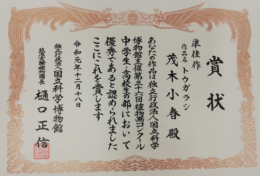 賞状
準佳作
作品名 トウガラシ
茂木小春殿
あなたの作品は独立行政法人国立科学
博物館主催第三十六回植物画コンクール
中学生・高校生の部において
優秀であると認められました
ここにこれを賞します
令和元年十二月十八日
独立行政法人国立科学博物館
樋口正信